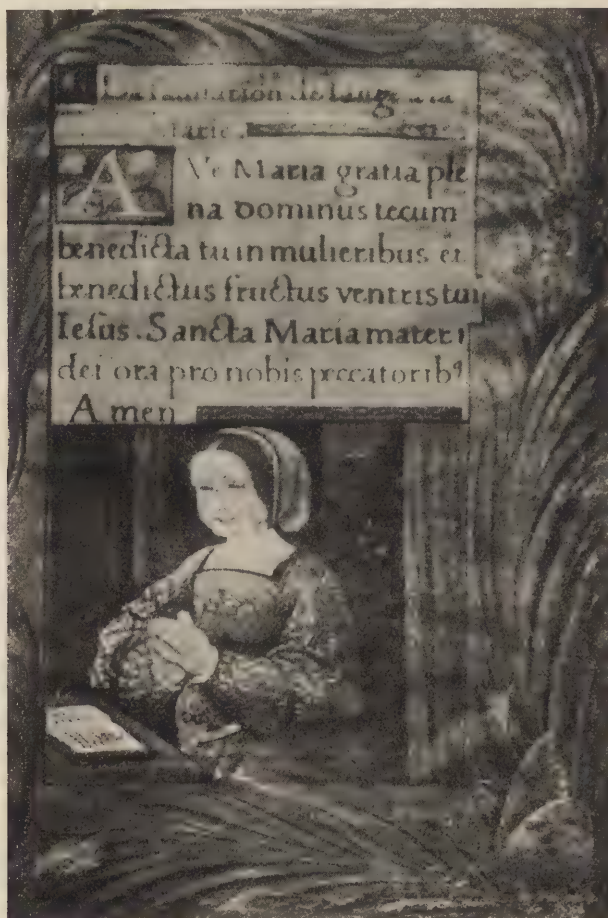 La salutation de lange a la
Marie.
AVe Maria gratia ple
na dominus tecum
benedicta tu in mulieribus et
benedictus fructus ventris tui
Iesus. Sancta Maria mater
dei ora pro nobis peccatoribꝰ
Amen